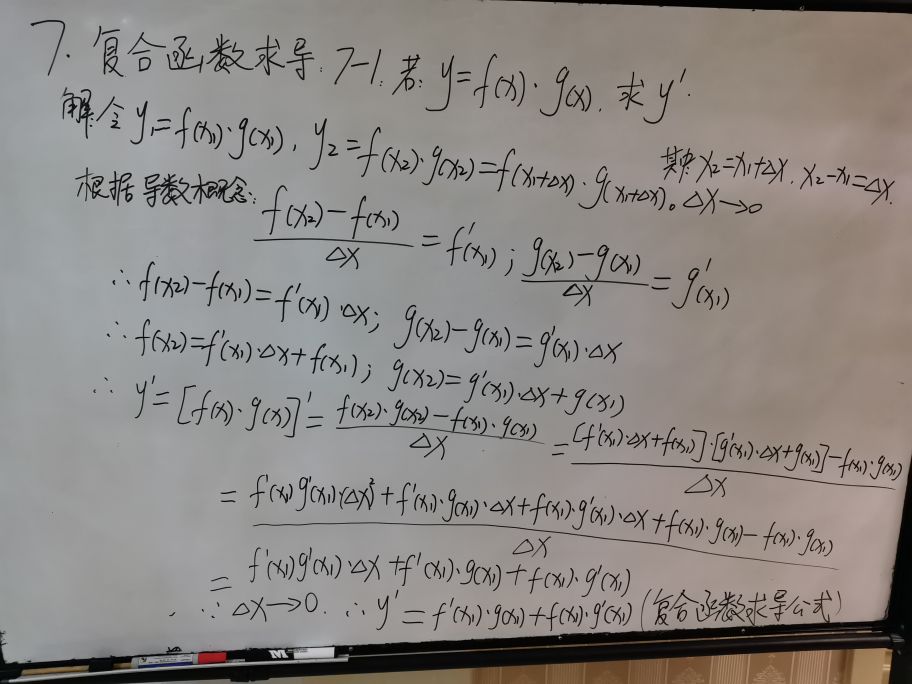 7. 复合函数求导: 7-1. 若: y=f(x)·g(x), 求y'.
解: 令 y₁=f(x₁)·g(x₁), y₂=f(x₂)·g(x₂)=f(x₁+Δx)·g(x₁+Δx)。 其中: x₂=x₁+Δx. x₂-x₁=Δx. Δx→0
根据导数概念:
(f(x₂)-f(x₁))/Δx = f'(x₁) ; (g(x₂)-g(x₁))/Δx = g'(x₁)
∴ f(x₂)-f(x₁)=f'(x₁)·Δx; g(x₂)-g(x₁)=g'(x₁)·Δx
∴ f(x₂)=f'(x₁)·Δx+f(x₁); g(x₂)=g'(x₁)·Δx+g(x₁)
∴ y'=[f(x)·g(x)]'= (f(x₂)·g(x₂)-f(x₁)·g(x₁))/Δx = ([f'(x₁)·Δx+f(x₁)]·[g'(x₁)·Δx+g(x₁)]-f(x₁)·g(x₁))/Δx
= (f'(x₁)g'(x₁)·(Δx)²+f'(x₁)·g(x₁)·Δx+f(x₁)·g'(x₁)·Δx+f(x₁)·g(x₁)-f(x₁)·g(x₁))/Δx
= f'(x₁)g'(x₁)·Δx+f'(x₁)·g(x₁)+f(x₁)·g'(x₁)
∵ Δx→0. ∴ y'=f'(x₁)·g(x₁)+f(x₁)·g'(x₁) (复合函数求导公式)